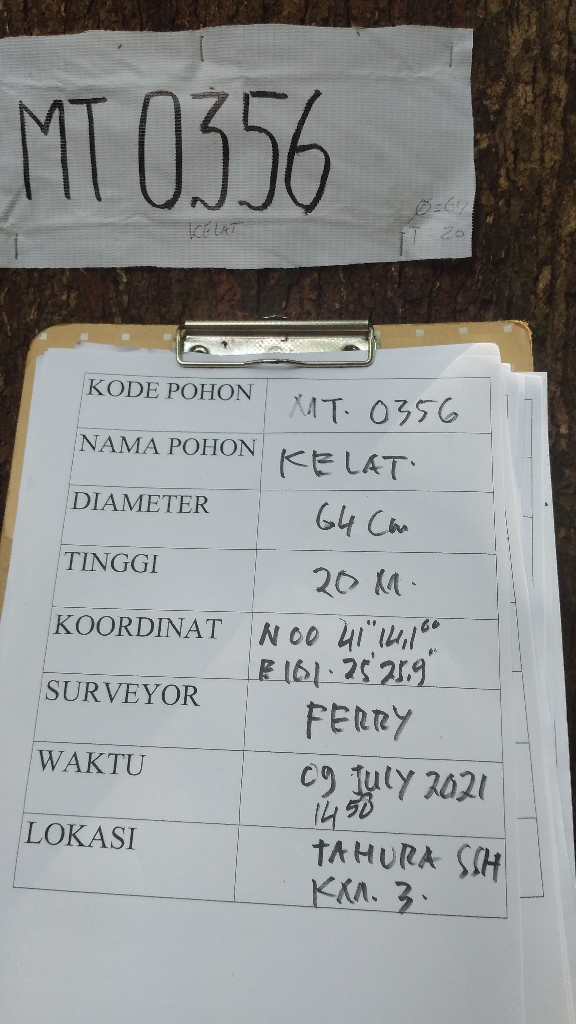 MT 0356
KELAT
Ø=64
T 20
KODE POHON MT. 0356
NAMA POHON KELAT.
DIAMETER 64 Cm
TINGGI 20 M.
KOORDINAT N 00 41" 14,1"
E 101. 25' 25.9"
SURVEYOR FERRY
WAKTU 09 JULY 2021
14 50
LOKASI TAHURA SSH
KM. 3.